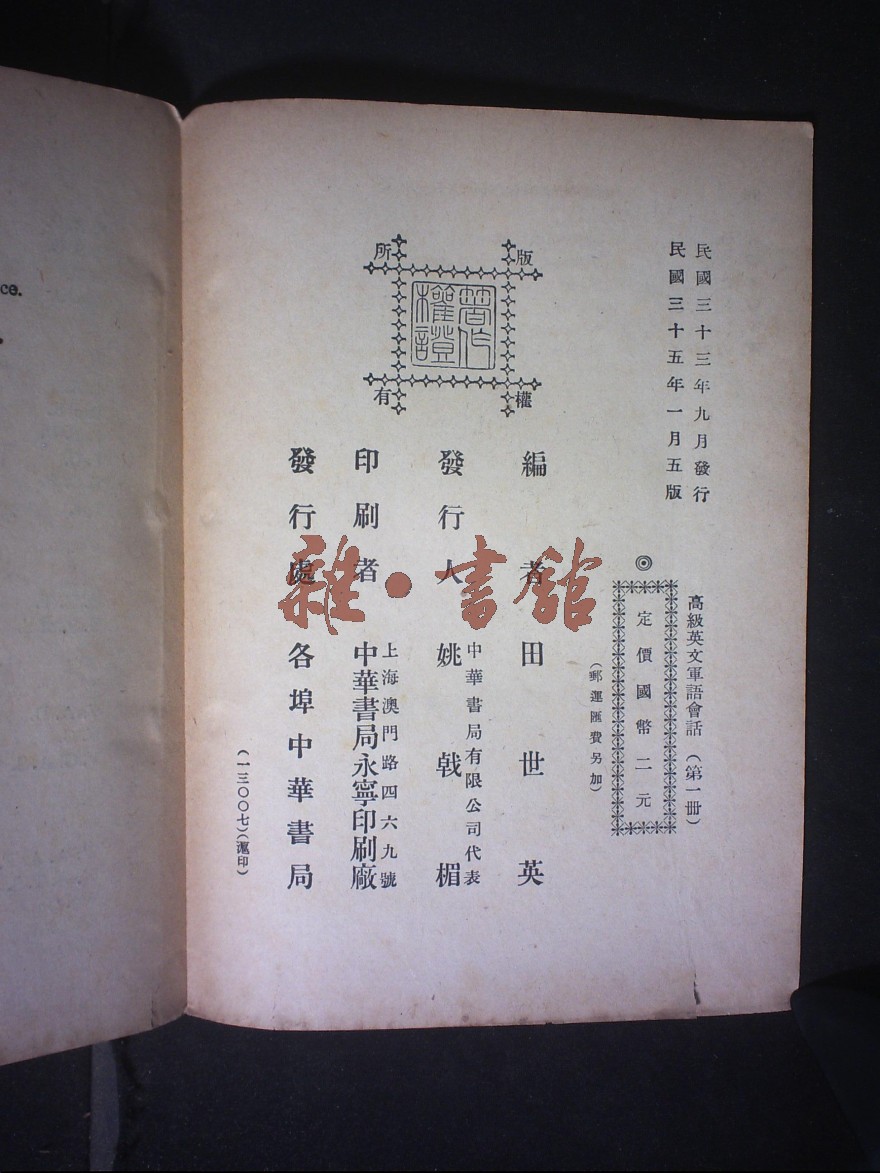 民國三十三年九月發行
民國三十五年一月五版
高級英文軍語會話(第一冊)
◎
定價國幣二元
(郵運匯費另加)
版權
所有
著作
權證
編者 田世英
發行人 中華書局有限公司代表
姚戟楣
印刷者 上海澳門路四六九號
中華書局永寧印刷廠
發行處 各埠中華書局
(一三〇〇七)(滬印)
雜·書館
ce.